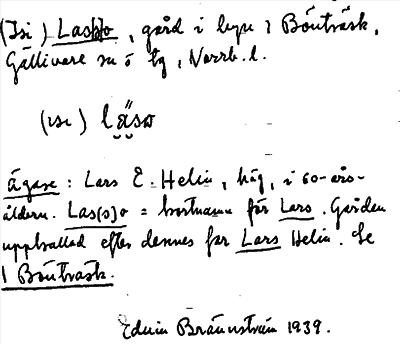 (Isi) Las(s)o, gård i byn 1 Bönträsk,
Gällivare sn ö tg, Norrb. l.
(ısı) lä̈so
ägare: Lars E. Helin, häg, i 60-års-
åldern. Las(s)o = kortnamn för Lars. Gården
uppkallad efter dennes far Lars Helin. Se
1 Bönträsk.
Edvin Brännström 1939.